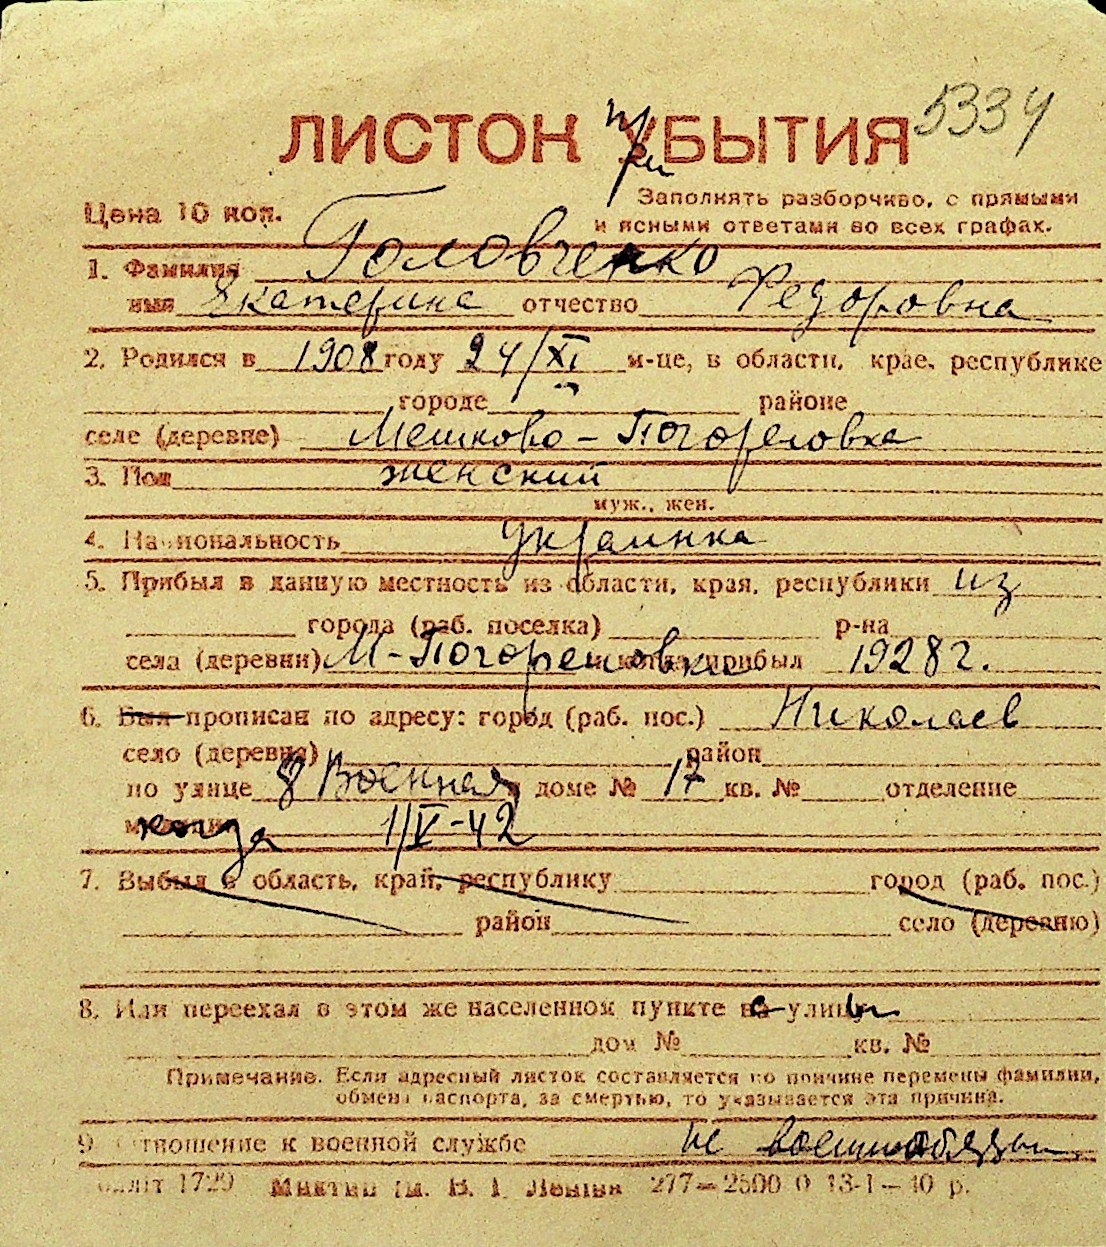 5334
ЛИСТОК УБЫТИЯ
при
Цена 10 коп.
Заполнять разборчиво, с прямыми
и ясными ответами во всех графах.
1. Фамилия Головченко
имя Екатерина отчество Федоровна
2. Родился в 1908 году 24/XI м-це, в области, крае, республике
городе районе
селе (деревне) Мешково-Погореловка
3. Пол женский
муж., жен.
4. Национальность Украинка
5. Прибыл в данную местность из области, края, республики из
города (раб. поселка) р-на
села (деревни) М-Погореловки и когда прибыл 1928 г.
6. Был прописан по адресу: город (раб. пос.) Николаев
село (деревня) район
по улице 8 Военная, доме № 17 кв. № отделение
когда 1/V-42
7. Выбыл в область, край, республику город (раб. пос.)
район село (деревню)
8. Или переехал в этом же населенном пункте с улицы
дом № кв. №
Примечание. Если адресный листок составляется по причине перемены фамилии,
обмена паспорта, за смертью, то указывается эта причина.
9. Отношение к военной службе не военнообязан
1729 277—2500 0 13-1—40 р.